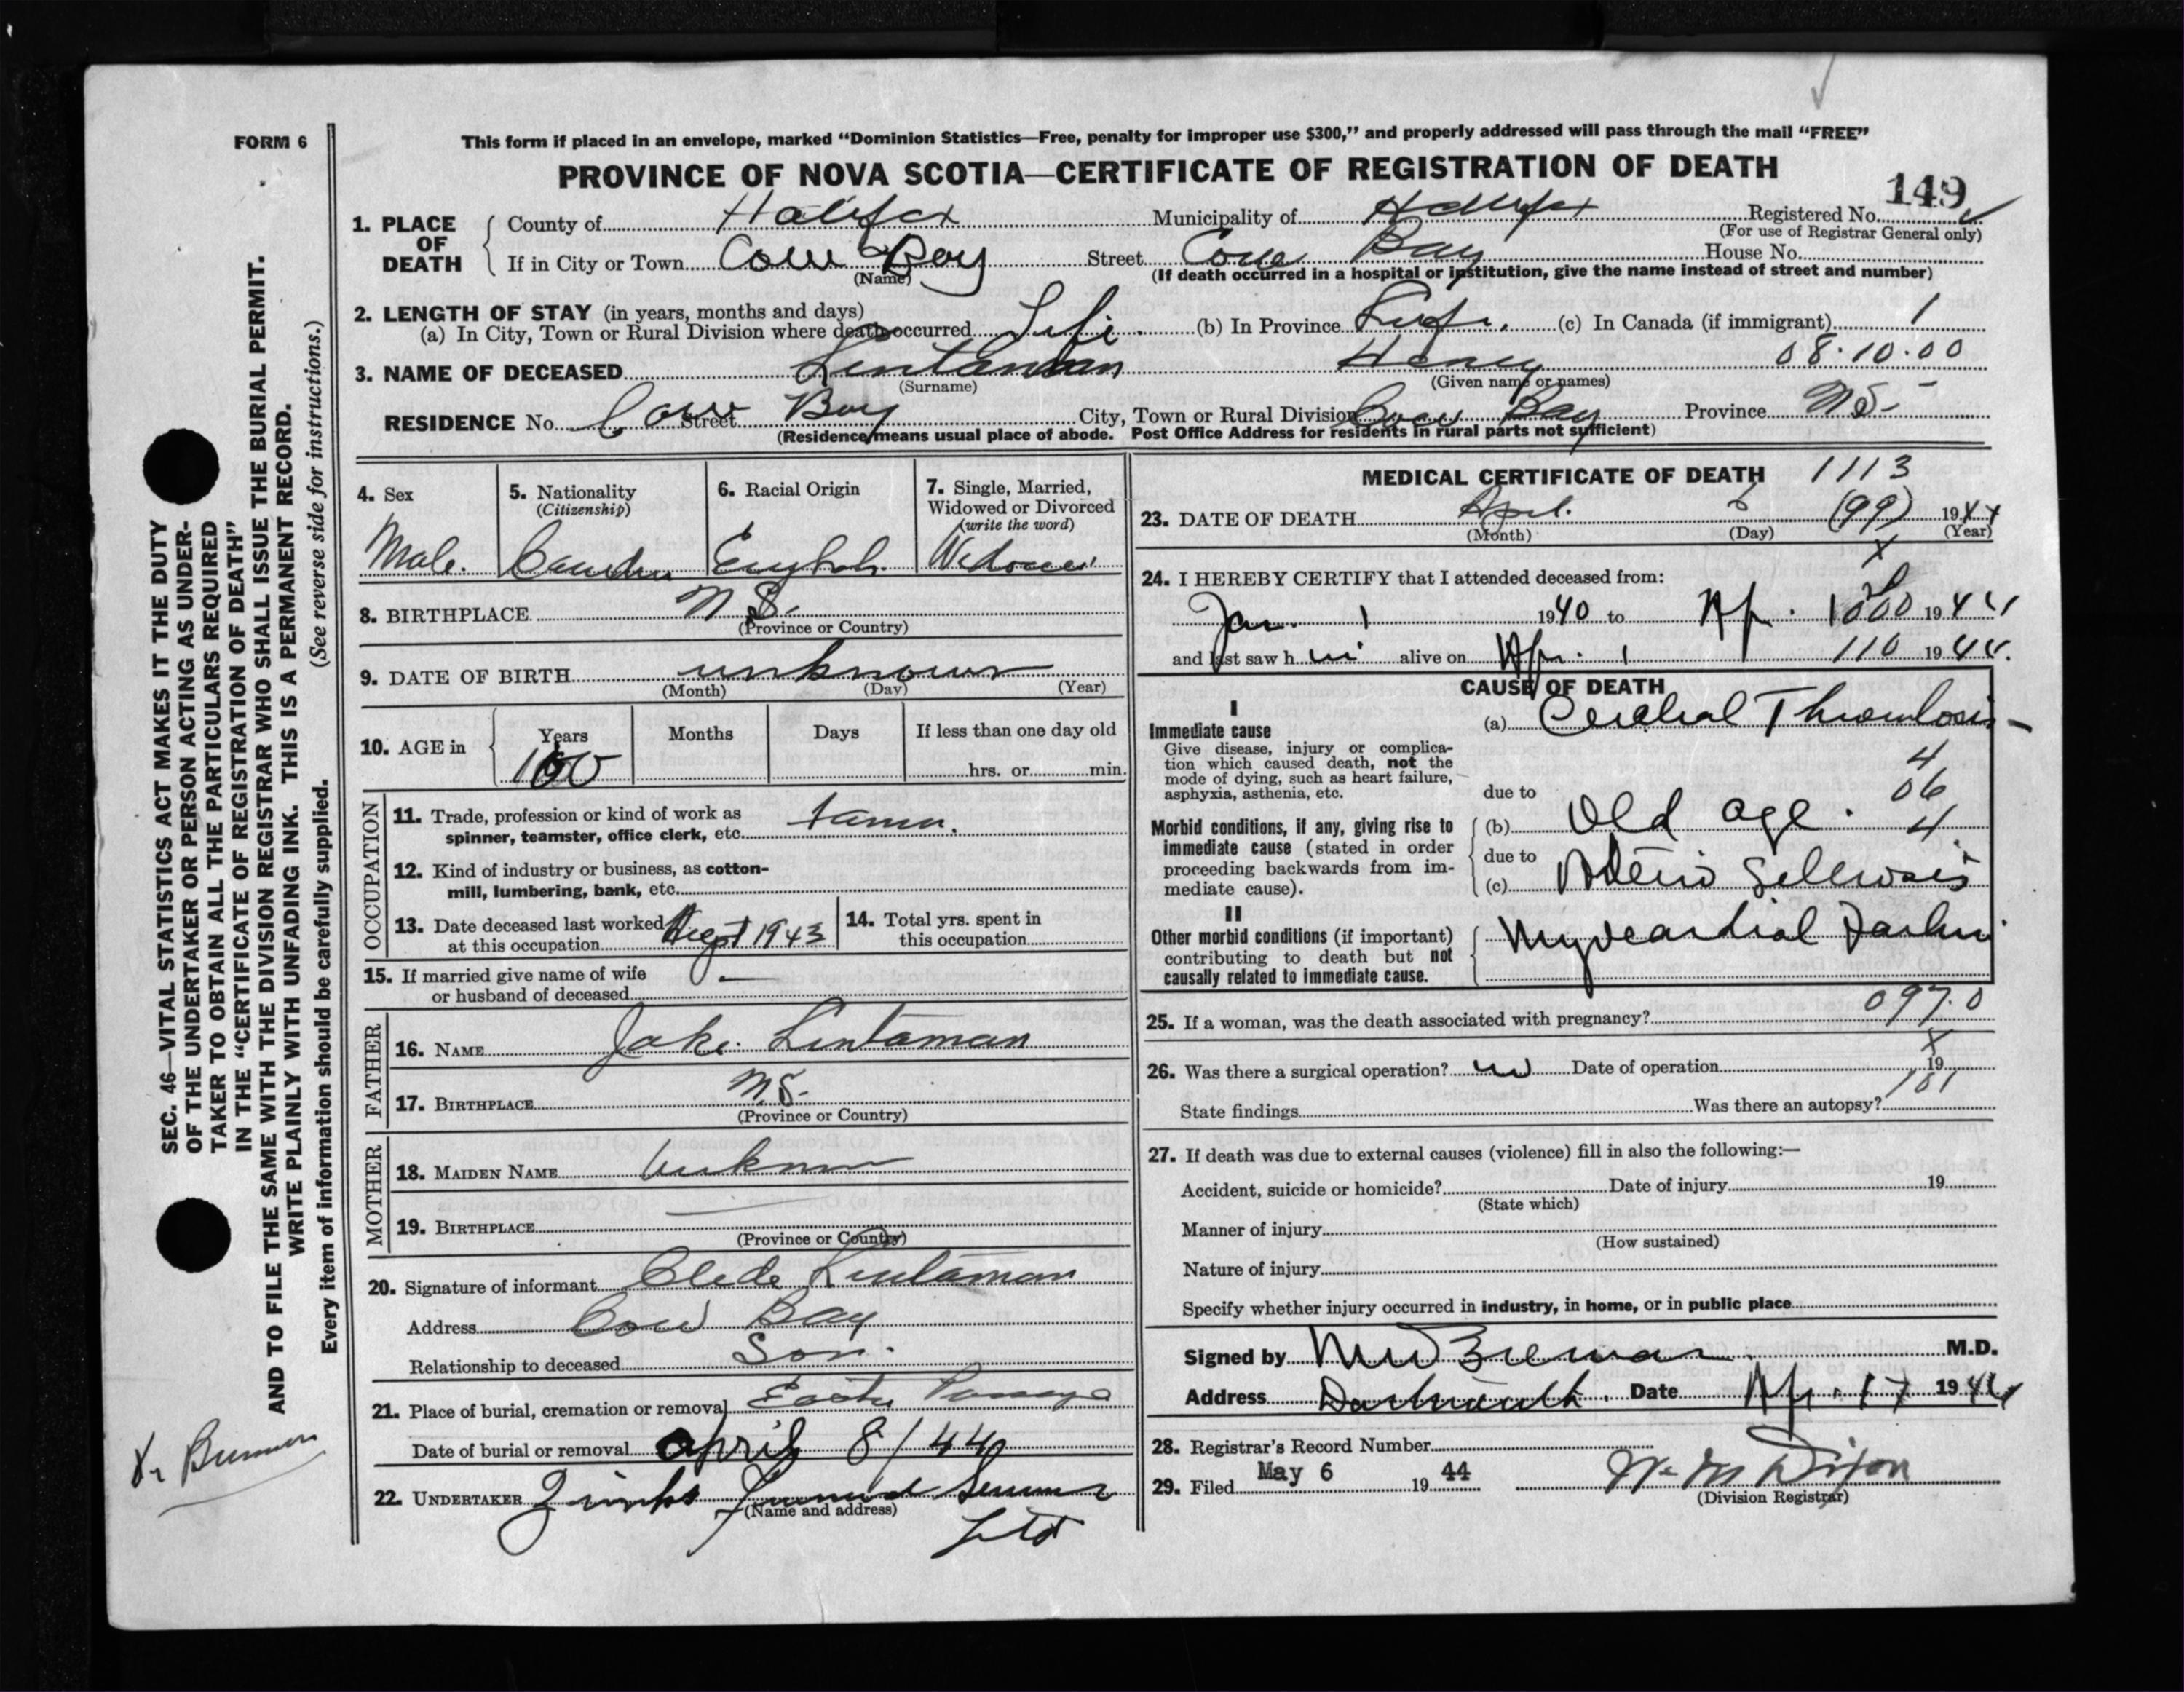 FORM 6
This form if placed in an envelope, marked “Dominion Statistics—Free, penalty for improper use $300,” and properly addressed will pass through the mail “FREE”
PROVINCE OF NOVA SCOTIA—CERTIFICATE OF REGISTRATION OF DEATH
149
1. PLACE OF DEATH County of Halifax Municipality of Halifax Registered No.
(For use of Registrar General only)
If in City or Town Cow Bay Street Cow Bay House No.
(Name) (If death occurred in a hospital or institution, give the name instead of street and number)
2. LENGTH OF STAY (in years, months and days)
(a) In City, Town or Rural Division where death occurred Life (b) In Province Life. (c) In Canada (if immigrant) 1
08.10.00
3. NAME OF DECEASED Lintaman Henry
(Surname) (Given name or names)
RESIDENCE No. Cow Bay Street City, Town or Rural Division Cow Bay Province N.S.
(Residence means usual place of abode. Post Office Address for residents in rural parts not sufficient)
4. Sex Male.
5. Nationality (Citizenship)
6. Racial Origin English
7. Single, Married, Widowed or Divorced (write the word)
8. BIRTHPLACE N.S.
(Province or Country)
9. DATE OF BIRTH unknown
(Month) (Day) (Year)
10. AGE in Years 100 Months Days If less than one day old
hrs. or min.
OCCUPATION
11. Trade, profession or kind of work as
spinner, teamster, office clerk, etc.
12. Kind of industry or business, as cotton-
mill, lumbering, bank, etc.
13. Date deceased last worked
at this occupation 1943
14. Total yrs. spent in
this occupation
15. If married give name of wife
or husband of deceased —
FATHER
16. NAME Jake Lintaman
17. BIRTHPLACE N.S.
(Province or Country)
MOTHER
18. MAIDEN NAME unknown
19. BIRTHPLACE
(Province or Country)
20. Signature of informant Clede Lintaman
Address Cow Bay
Relationship to deceased Son.
21. Place of burial, cremation or removal Eastern Passage
Date of burial or removal april 8/44
22. UNDERTAKER Zinks Funeral Service
(Name and address)
Ltd
MEDICAL CERTIFICATE OF DEATH 1113
23. DATE OF DEATH April (99) 1944
(Month) (Day) (Year)
24. I HEREBY CERTIFY that I attended deceased from:
Jan. 1 1940 to Ap. 1944
and last saw h alive on Apr. 1 110 1944.
CAUSE OF DEATH
I
Immediate cause
Give disease, injury or complica-
tion which caused death, not the
mode of dying, such as heart failure,
asphyxia, asthenia, etc.
(a) Cerebral Thrombosis
4
due to 06
Morbid conditions, if any, giving rise to
immediate cause (stated in order
proceeding backwards from im-
mediate cause).
(b) Old age. 4
due to
(c) Arterio Sclerosis
II
Other morbid conditions (if important)
contributing to death but not
causally related to immediate cause.
Myocardial
097.0
25. If a woman, was the death associated with pregnancy?
26. Was there a surgical operation? no Date of operation 19
101
State findings Was there an autopsy?
27. If death was due to external causes (violence) fill in also the following:—
Accident, suicide or homicide? Date of injury 19
(State which)
Manner of injury
(How sustained)
Nature of injury
Specify whether injury occurred in industry, in home, or in public place
Signed by M.D.
Address Dartmouth. Date Apr. 17 1944
28. Registrar's Record Number
29. Filed May 6 19 44
W. M. Dixon
(Division Registrar)
SEC. 46—VITAL STATISTICS ACT MAKES IT THE DUTY
OF THE UNDERTAKER OR PERSON ACTING AS UNDER-
TAKER TO OBTAIN ALL THE PARTICULARS REQUIRED
IN THE “CERTIFICATE OF REGISTRATION OF DEATH”
AND TO FILE THE SAME WITH THE DIVISION REGISTRAR WHO SHALL ISSUE THE BURIAL PERMIT.
WRITE PLAINLY WITH UNFADING INK. THIS IS A PERMANENT RECORD.
Every item of information should be carefully supplied. (See reverse side for instructions.)